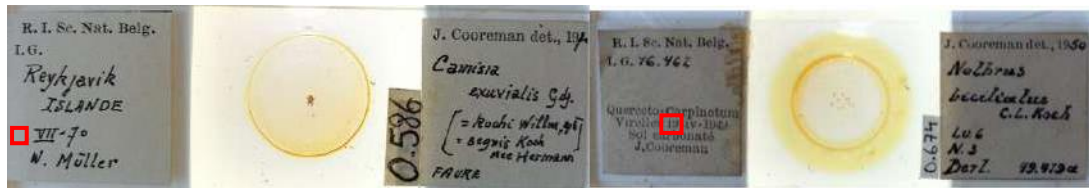 R. I. Sc. Nat. Belg.
I. G.
Reykjavik
ISLANDE
VII-70
W. Müller
0.586
J. Cooreman det., 19
Camisia
exuvialis Gdg.
= Kochi Willm,
= segnis Koch
nec Hermann
FAURE
R. I. Sc. Nat. Belg.
I. G. 16.462
Querceto-Carpinetum
Virelles 19-iv-1948
Sol carbonaté
J. Cooreman
0.674
J. Cooreman det., 1950
Nothrus
C.L. Koch
LU6
N.3
Berl. 49.479a